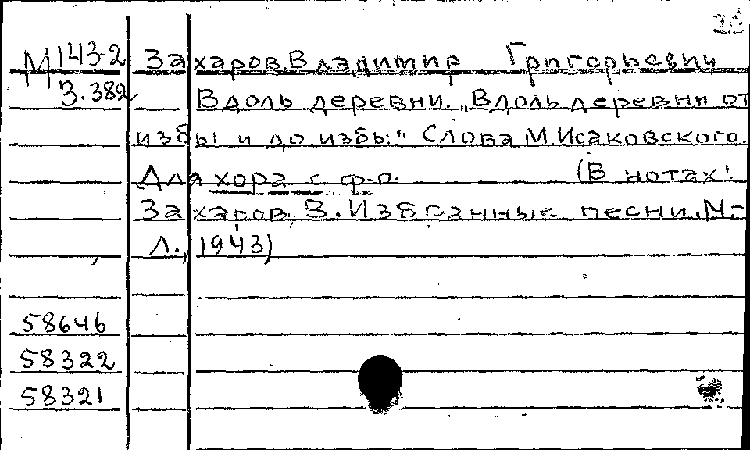 М 143-2 Захаров, Владимир Григорьевич
З.382 Вдоль деревни. „Вдоль деревни от
избы и до избы" Слова М.Исаковского.
Для хора с ф-п. (В нотах:
Захаров, В. Избранные песни. М-
Л., 1943)
58646
58322
58321